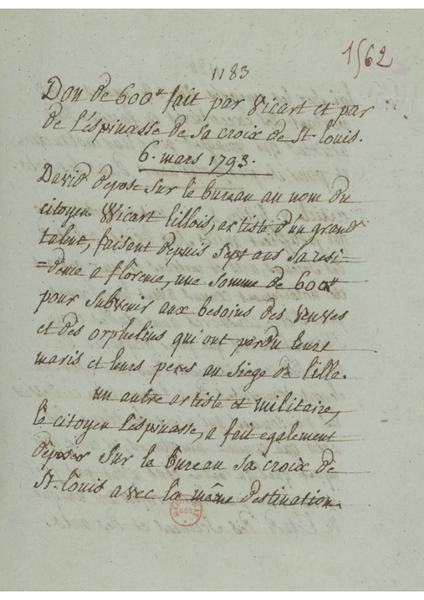 1562
1183
Don de 600.lt fait par Vicart et par
de l'éspinasse de Sa croix de St Louis.
6. mars 1793.
David depose sur le bureau au nom du
citoyen Wicart lillois, artiste d'un grand
talent, faisant depuis sept ans sa resi=
=dence a florence, une somme de 600lt
pour subvenir aux besoins des veuves
et des orphelins qui ont perdu leurs
maris et leurs peres au Siege de lille.
un autre artiste et militaire,
le citoyen lespinasse, a fait également
deposer sur le bureau sa croix de
St. Louis avec la même destination.